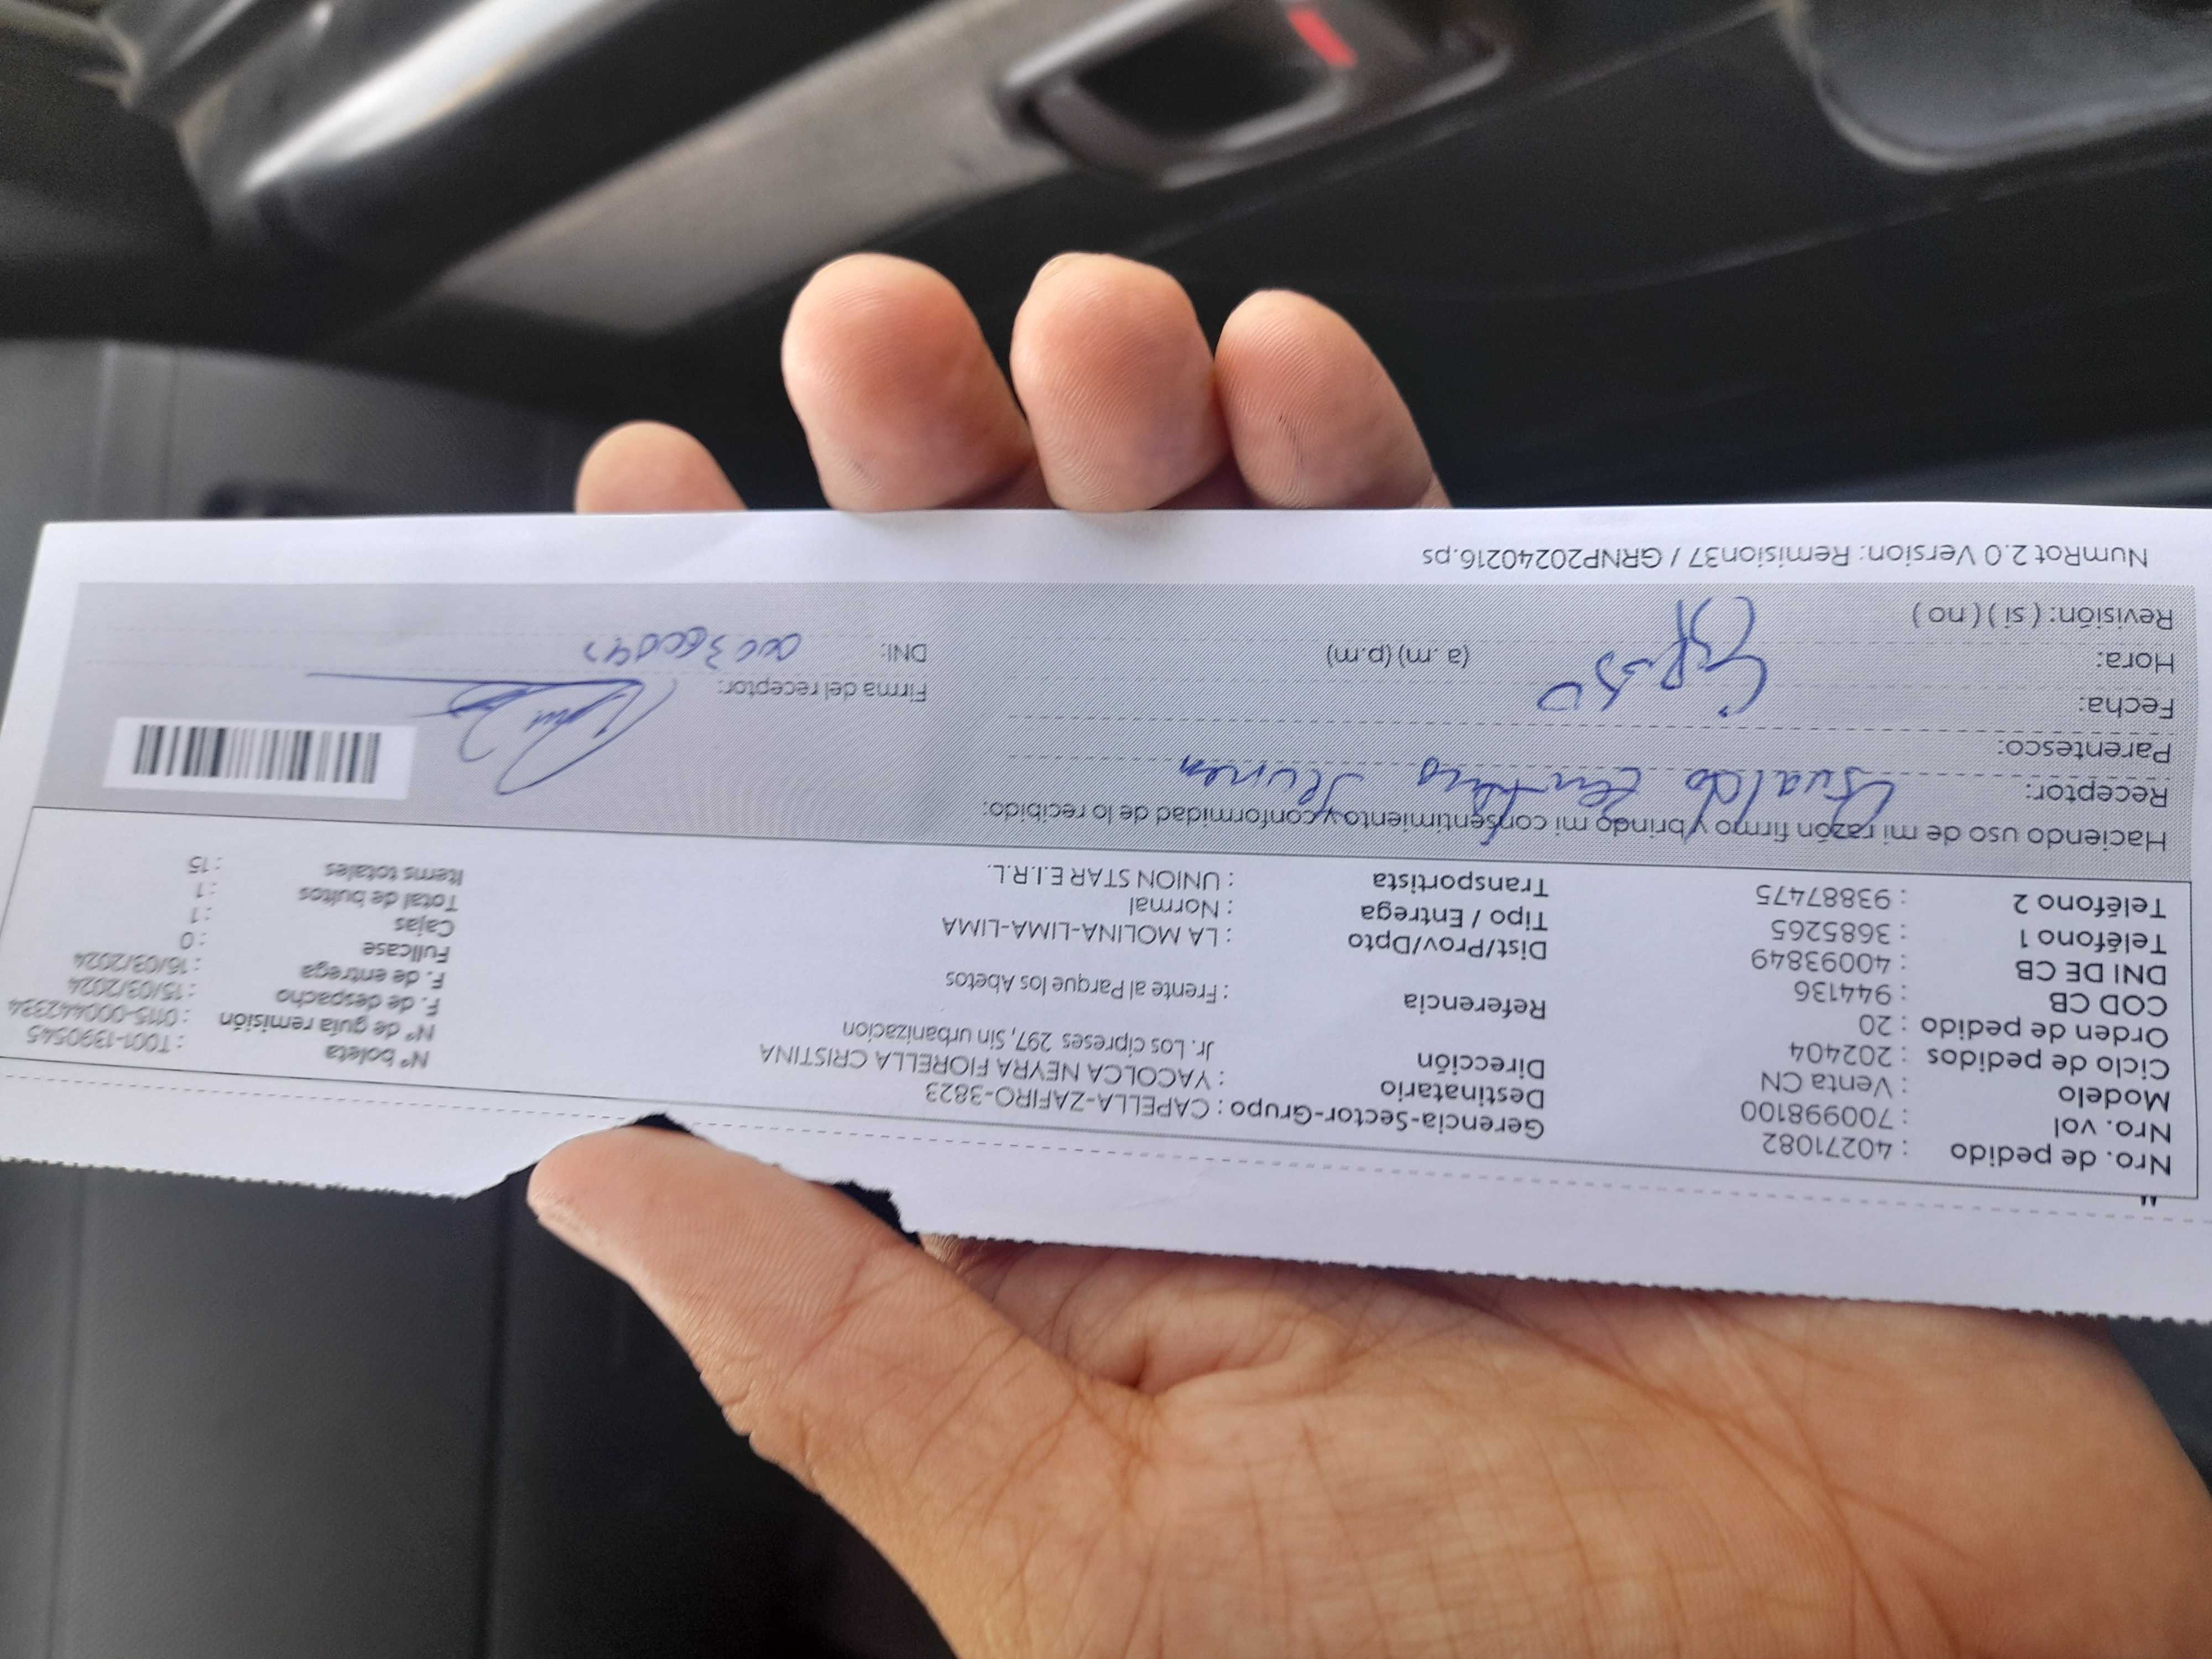 "
Nro. de pedido : 40271082
Nro. vol : 700998100
Modelo : Venta CN
Ciclo de pedidos : 202404
Orden de pedido : 20
COD CB : 944136
DNI DE CB : 40093849
Teléfono 1 : 3685265
Teléfono 2 : 93887475
Gerencia-Sector-Grupo : CAPELLA-ZAFIRO-3823
Destinatario : YACOLCA NEYRA FIORELLA CRISTINA
Dirección Jr. Los cipreses 297, Sin urbanizacion
Referencia : Frente al Parque los Abetos
Dist/Prov/Dpto : LA MOLINA-LIMA-LIMA
Tipo / Entrega : Normal
Transportista : UNION STAR E.I.R.L.
N° boleta : T001-1390545
N° de guía remisión : 0115-000442334
F. de despacho : 15/03/2024
F. de entrega : 16/03/2024
Fullcase : 0
Cajas : 1
Total de bultos : 1
Items totales : 15
Haciendo uso de mi razón firmo y brindo mi consentimiento y conformidad de lo recibido:
Receptor:
Parentesco:
Fecha:
Hora: (a. m) (p.m)
Revisión: ( si ) ( no )
Firma del receptor:
DNI:
NumRot 2.0 Version: Remision37 / GRNP20240216.ps